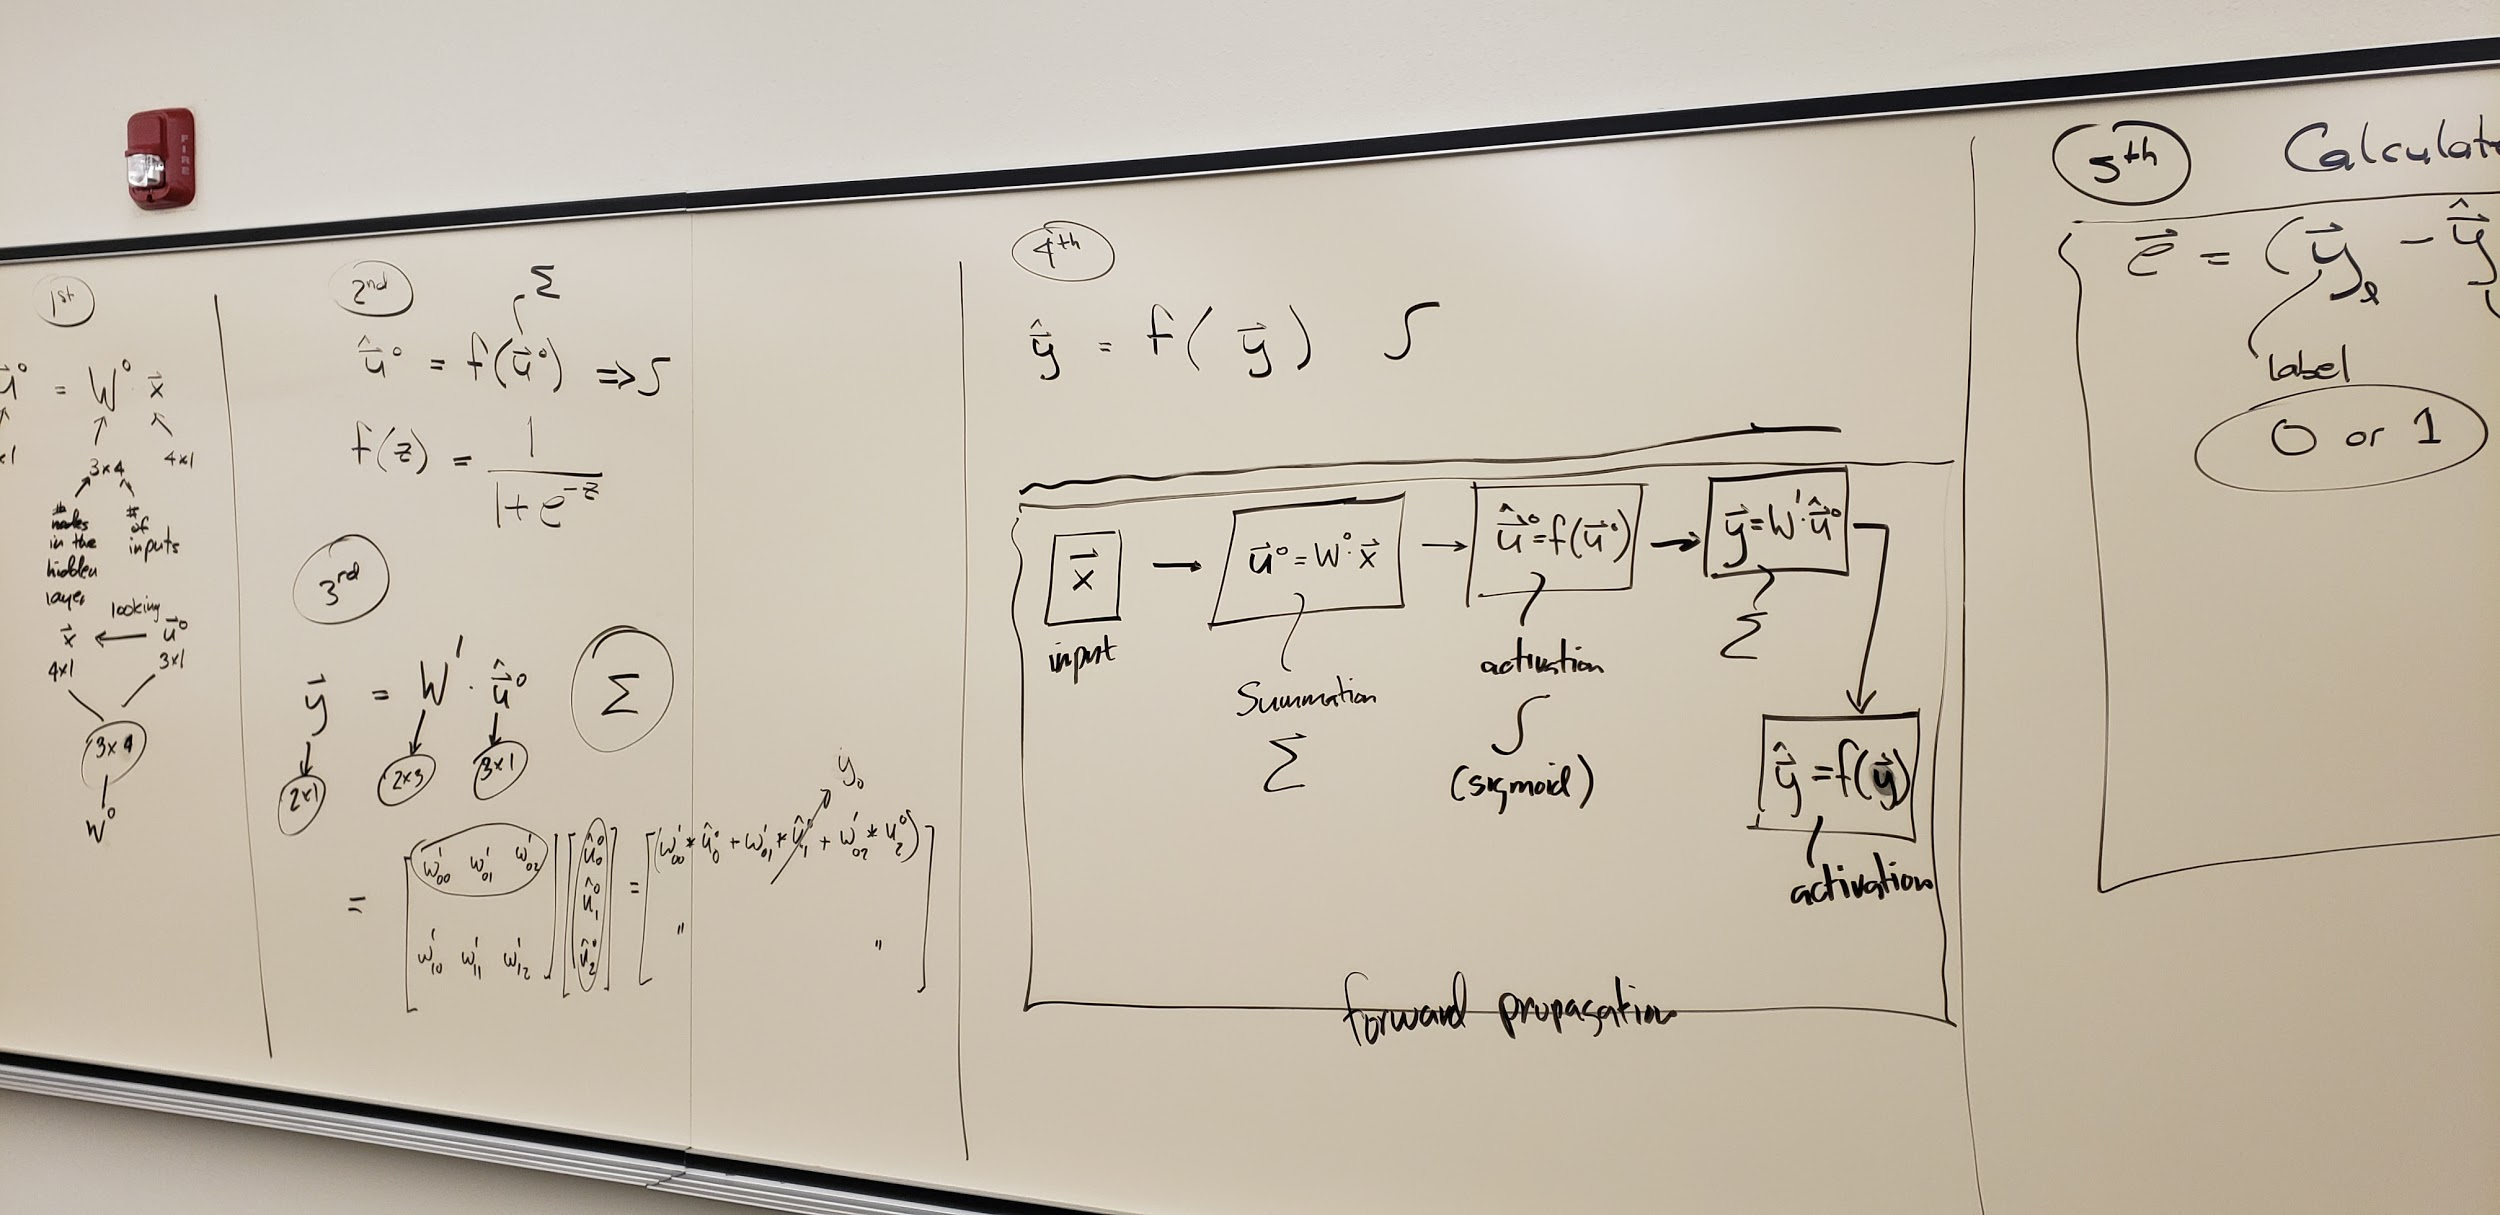 FIRE
1st
u⃗⁰ = W⁰· x⃗
x1
3x4
4x1
# nodes
in the
hidden
layer
# of
inputs
looking
x⃗ ← u⃗⁰
4x1
3x1
3x4
W⁰
2nd
Σ
û⃗⁰ = f(u⃗⁰) ⇒ ∫
f(z) = 1 / (1 + e^-z)
3rd
y⃗ = W¹ · û⃗⁰
Σ
2x1
2x3
3x1
y₀
= [w¹₀₀ w¹₀₁ w¹₀₂] [û⁰₀] = [(w¹₀₀ * û⁰₀ + w¹₀₁ * û⁰₁ + w¹₀₂ * u⁰₂)]
û⁰₁
w¹₁₀ w¹₁₁ w¹₁₂ û⁰₂ " "
4th
ŷ⃗ = f(y⃗) ∫
x⃗ → u⃗⁰ = W⁰· x⃗ → û⃗⁰ = f(u⃗⁰) → y⃗ = W¹· û⃗⁰
input
Summation
Σ
activation
∫
(sigmoid)
Σ
ŷ⃗ = f(y⃗)
activation
forward propagation
5th
Calculat
e⃗ = (y⃗ₗ - ŷ⃗
label
0 or 1